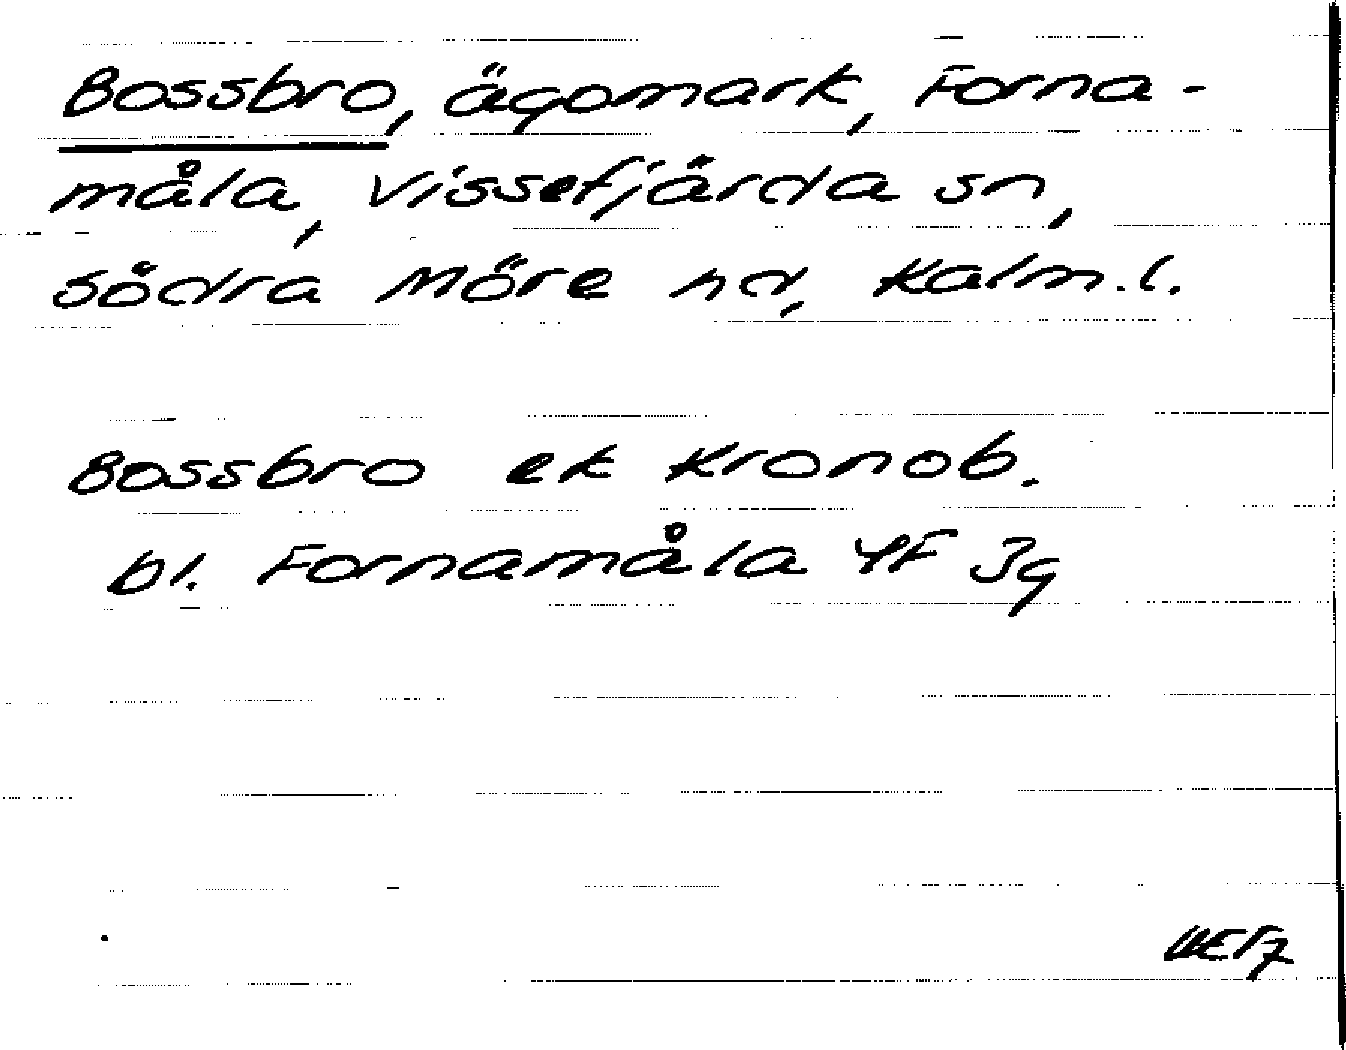 Bossbro, ägomark, Forna-
måla, Vissefjärda sn,
södra Möre hd, Kalm.l.
Bossbro ek Kronob.
bl. Fornamåla 4F 3g